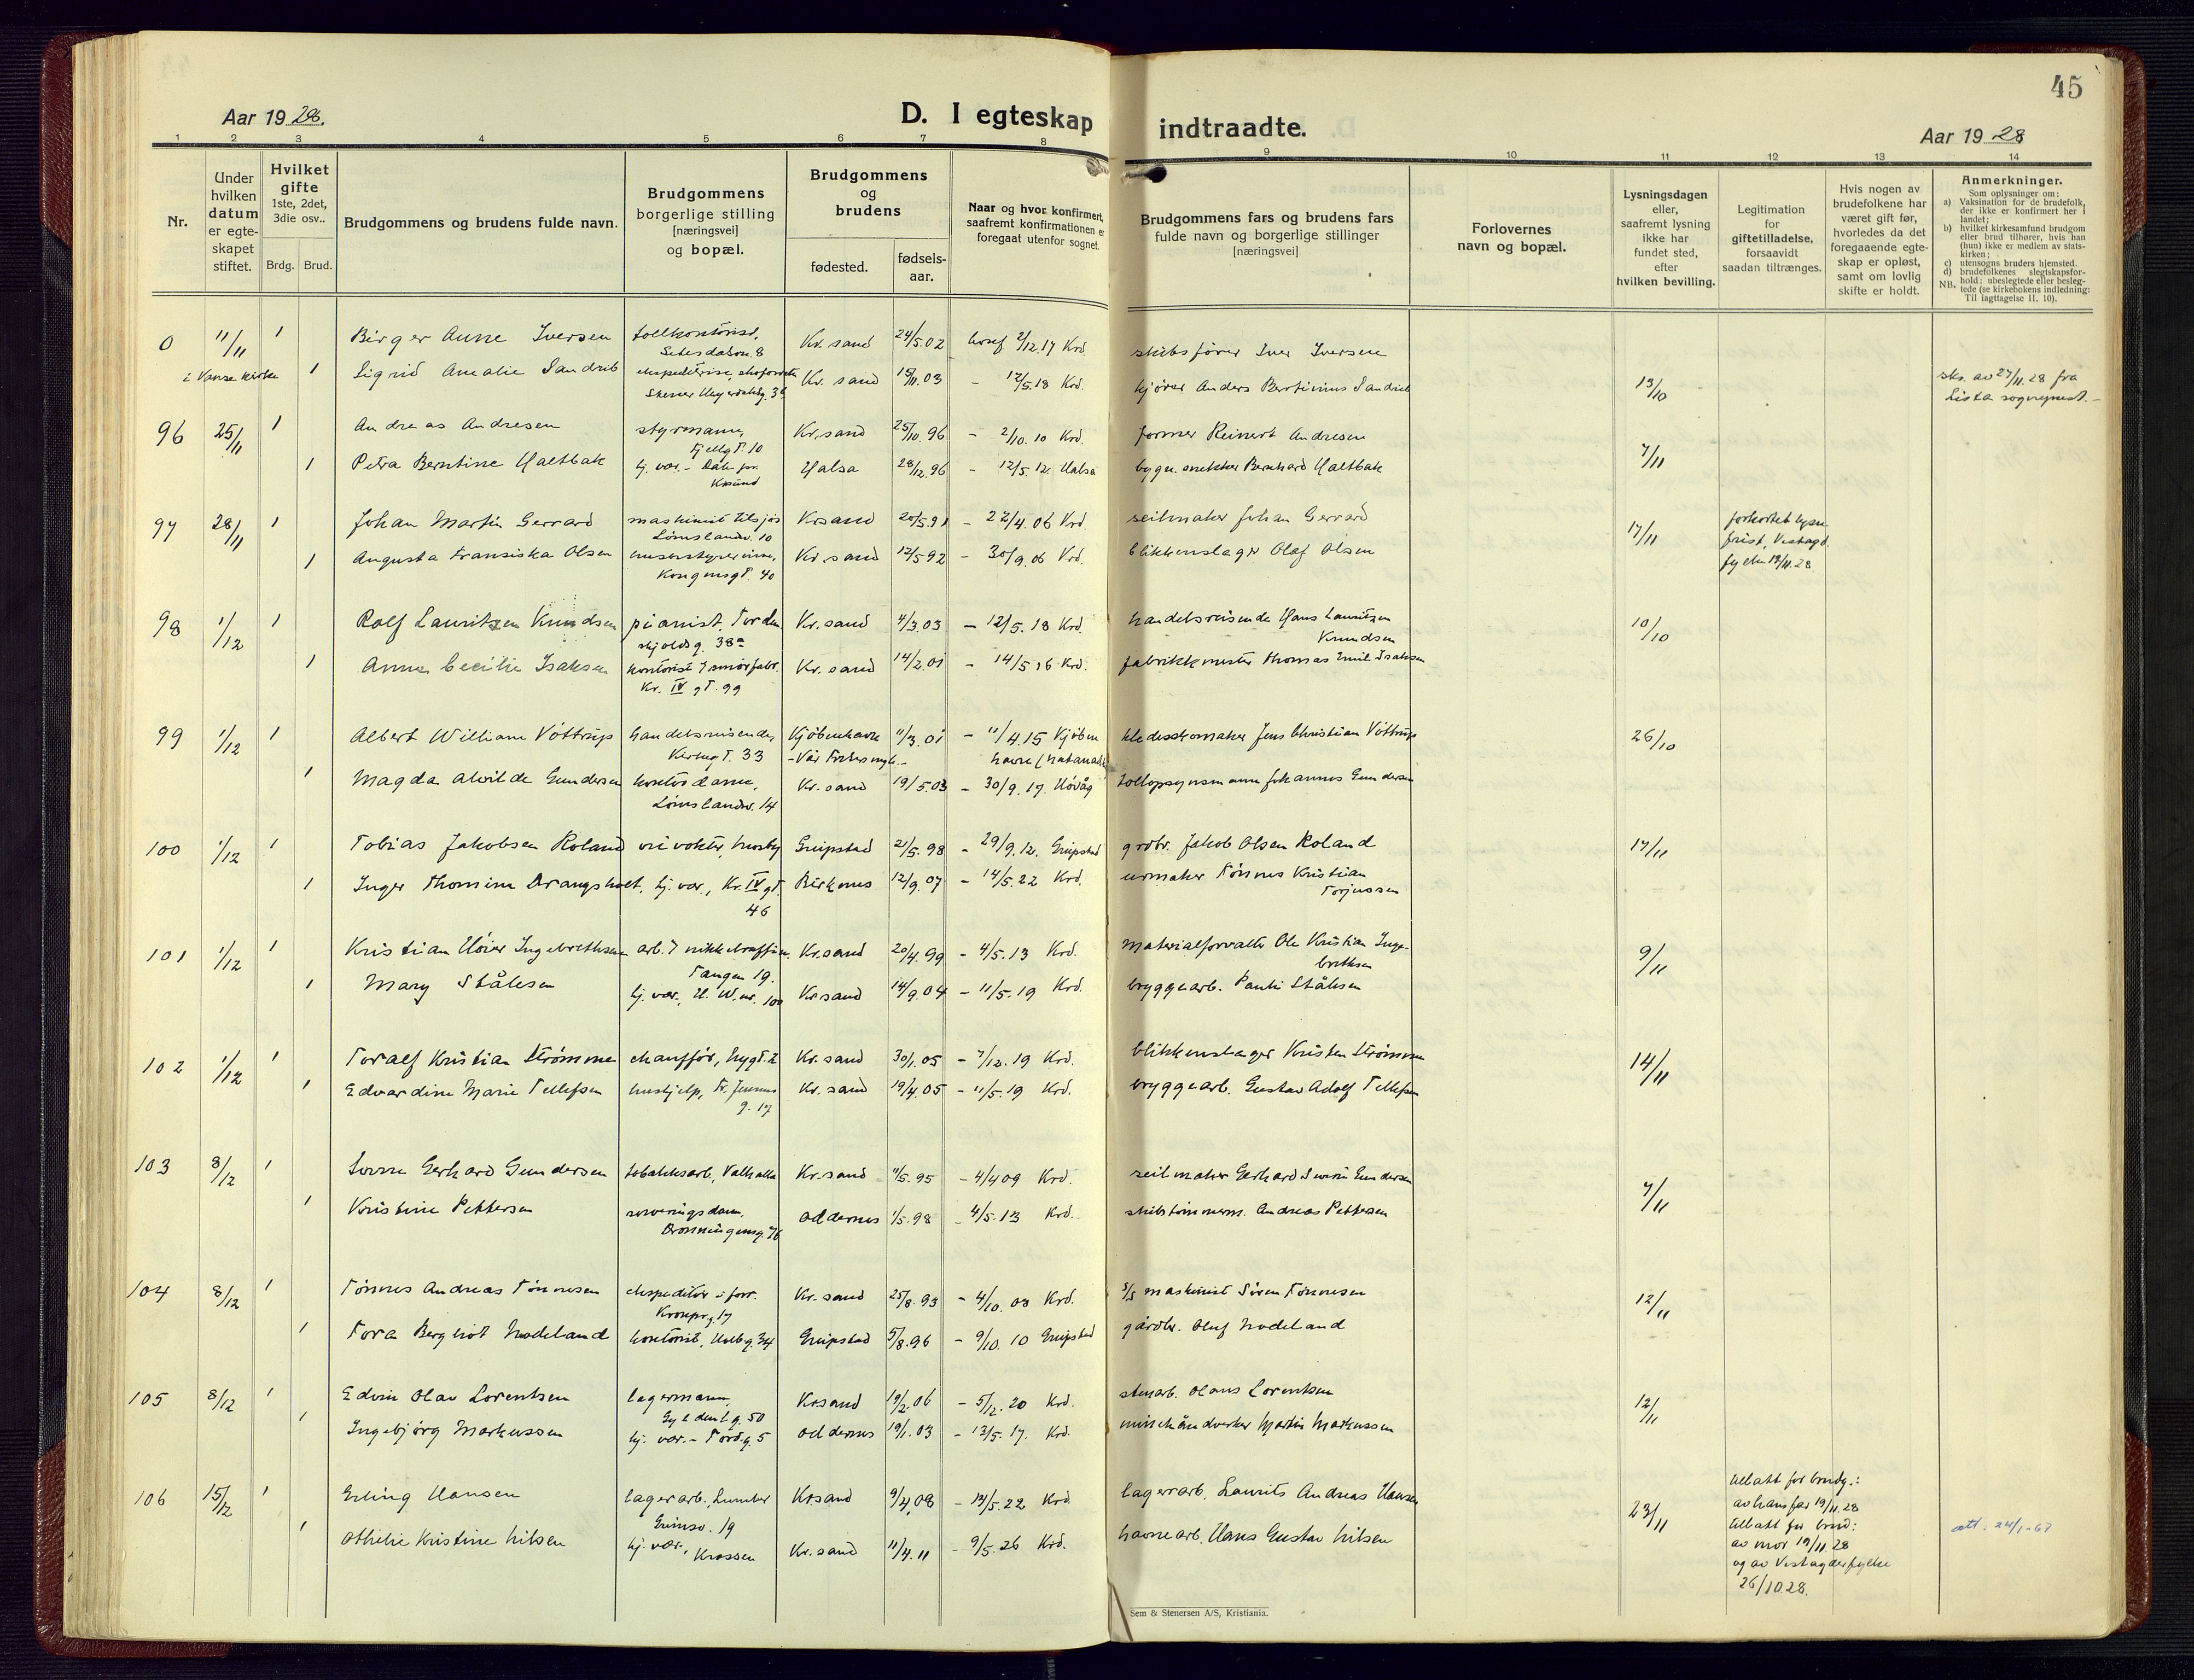 45
Aar 1928.
D. I egteskap indtraadte.
Aar 1928
1 2 3 4 5 6 7 8 9 10 11 12 13 14
Nr.
Under hvilken datum er egte-skapet stiftet.
Hvilket gifte 1ste, 2det, 3die osv..
Brdg. Brud.
Brudgommens og brudens fulde navn.
Brudgommens borgerlige stilling [næringsvei] og bopæl.
Brudgommens og brudens
fødested.
fødsels-aar.
Naar og hvor konfirmert, saafremt konfirmationen er foregaat utenfor sognet.
Brudgommens fars og brudens fars fulde navn og borgerlige stillinger [næringsvei]
Forlovernes navn og bopæl.
Lysningsdagen eller, saafremt lysning ikke har fundet sted, efter hvilken bevilling.
Legitimation for giftetilladelse, forsaavidt saadan tiltrænges.
Hvis nogen av brudefolkene har været gift før, hvorledes da det foregaaende egte-skap er opløst, samt om lovlig skifte er holdt.
Anmerkninger.
Som oplysninger om:
a) Vaksination for de brudefolk, der ikke er konfirmert her i landet;
b) hvilket kirkesamfund brudgom eller brud tilhører, hvis han (hun) ikke er medlem av stats-kirken;
c) utensogns bruders hjemsted.
d) brudefolkenes slegtskapsfor-hold: ubeslegtede eller besleg-tede (se kirkebokens indledning:
NB. Til iagttagelse II. 10).
0 11/11 1 Birger Anne Iversen tollkontorist, Setesdalsv. 8 Kr.sand 24/5.02 2/12.17 Krd. skibsfører Iver Iversen
i Vanse kirke 1 Sigrid Amalie Sandrib Kr.sand 15/11.03 - 12/5.18 Krd. kjører Anders Bertinius Sandrib 13/10 av 27/11.28 fra Lista sogneprest.-
96 25/11 Andreas Andresen styrmann, Fjellgt. 10 Kr.sand 25/10.96 - 2/10.10 Krd. former Reinert Andresen
1 Petra Berntine Haltbak hj. vær. - Halsa 28/12.96 - 12/5.12. Halsa bygn. snekker Bernhard Haltbak 7/11
97 28/11 1 Johan Martin Gerrard maskinist tilsjøs Lømslandsv. 10 Krsand 20/5.91 - 22/4.06 Krd. seilmaker Johan Gerrard
1 Augusta Fransiska Olsen husbestyrerinne, Kongensgt. 40 Kr.sand 12/5 92 - 30/9.06 Krd. blikkenslager Olaf Olsen 17/11 forkortet lysn. frist, Vestagd. fylke 19/11.28.
98 1/12 1 Rolf Lauritzen Knudsen pianist, Tordenskjoldsg. 38a Kr.sand 4/3.03 - 12/5.18 Krd. handelsreisende Hans Lauritzen Knudsen 10/10
1 Anna Cecilie Isaksen kontorist i smørfabr. Kr. IV gt. 99 Kr.sand 14/2.01 - 14/5.16 Krd. fabrikkmester Thomas Emil Isaksen
99 1/12 1 Albert William Vöttrup handelsreisende, Kirkegt. 33 Kjöbenhavn - Vår Frelsers 11/3.01 - 11/4.15 Kjöbenhavn klædesskomaker Jens Christian Vöttrup 26/10
1 Magda Alvilde Gundersen kontordame, Lømslandsv. 14 Kr.sand 19/5.03 - 30/9.17. Høvåg tollopsynsmann Johannes Gundersen
100 1/12 1 Tobias Jakobsen Roland Mosby Greipstad 21/5.98 - 29/9.12. Greipstad grdbr. Jakob Olsen Roland 17/11
1 Inger Thomine Drangsholt, hj. vær., Kr. IV gt. 46 Birkenes 12/9.07 - 14/5.22 Krd. urmaker Tønnes Kristian Torjussen
101 1/12 1 Kristian Höier Ingebrethsen arb. i nikkelraffin. Tangen 19. Kr.sand 20/4.99 - 4/5.13 Krd. Materialforvalter Ole Kristian Ingebrethsen 9/11
1 Mary Stålesen hj. vær., H. W. nr. 100 Kr.sand 14/9.04 - 11/5.19 Krd. bryggearb. Stålesen
102 1/12 1 Toralf Kristian Strømme chauffør, Nygt. 2 Kr.sand 30/1.05 - 7/12.19 Krd. blikkenslager Kristen Strømme 14/11
1 Edvardine Marie Tellefsen hushjelp, Fr. Jensens g. 17 Kr.sand 19/4.05 - 11/5.19 Krd. bryggearb. Gustav Adolf Tellefsen
103 8/12 1 Gerhard Gundersen tobakksarb., Valhalla Kr.sand 11/5.95 - 4/4 09 Krd. seilmaker Gerhard Gundersen 7/11
1 Kristine Pettersen serveringsdame, Dronningensg. 76 Oddernes 1/5.98 - 4/5.13 Krd. skibstømmerm. Andreas Pettersen
104 8/12 1 Tönnes Andreas Tönnesen ekspeditør i forr. Kronprg. 17 Kr.sand 25/8.93 - 4/10.08 Krd. S/S maskinist Sören Tönnesen 12/11
1 Tora Bergliot Nodeland kontorist, Holbg. 34 Greipstad 5/8.96 - 9/10.10 Greipstad gårdbr. Oluf Nodeland
105 8/12 1 Edvin Olav Lorentzen lagermann, Gyldenl. g. 50 Krsand 19/2.06 - 5/12.20 Krd. stenarb. Olaus Lorentzen 12/11
1 Ingebjörg Markussen hj. vær. - Tordg. 5 Oddernes 19/1.03 - 13/5.17. Krd. Martin Markussen
106 15/12 1 Erling Hansen lagerarb., Lumber Grimsv. 19 Krsand 9/4.08 - 14/5.22 Krd. lagerarb. Laurits Andreas Hansen 23/11 tillatt for brudg.: av hans far 19/11.28
1 Othilie Kristine Nilsen hj. vær., Krossen Kr.sand 11/4.11 - 9/5.26 Krd. havnearb. Hans Gustav Nilsen tillatt for brud: av mor 19/11 28 og av Vestagderfylke 26/10 28. att. 24/1-67
Sem & Stenersen A/S, Kristiania.